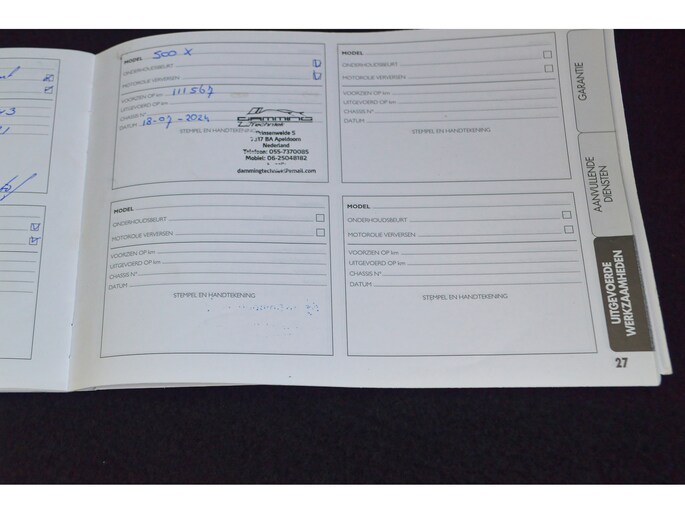 MODEL 500 X
ONDERHOUDSBEURT
MOTOROLIE VERVERSEN
VOORZIEN OP km 111567
UITGEVOERD OP km
CHASSIS N°
DATUM 18-07-2024
STEMPEL EN HANDTEKENING
DAMMING
Techniek
Prinsenweide 5
7317 BA Apeldoorn
Nederland
Telefoon: 055-7370085
Mobiel: 06-25048182
dammingtechniek@gmail.com
MODEL
ONDERHOUDSBEURT
MOTOROLIE VERVERSEN
VOORZIEN OP km
UITGEVOERD OP km
CHASSIS N°
DATUM
STEMPEL EN HANDTEKENING
MODEL
ONDERHOUDSBEURT
MOTOROLIE VERVERSEN
VOORZIEN OP km
UITGEVOERD OP km
CHASSIS N°
DATUM
STEMPEL EN HANDTEKENING
MODEL
ONDERHOUDSBEURT
MOTOROLIE VERVERSEN
VOORZIEN OP km
UITGEVOERD OP km
CHASSIS N°
DATUM
STEMPEL EN HANDTEKENING
GARANTIE
AANVULLENDE
DIENSTEN
UITGEVOERDE
WERKZAAMHEDEN
27